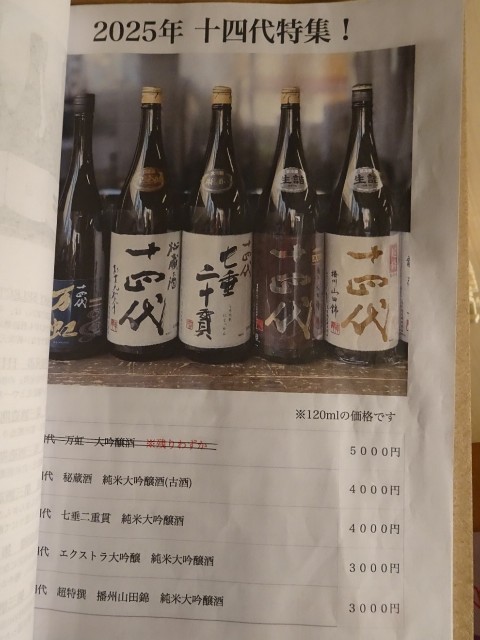 2025年 十四代特集！
十四代
秘蔵酒
十四代
七垂
二十貫
生詰
十四代
生詰
十四代
播州山田錦
十四代
万虹
※120mlの価格です
代 万虹 大吟醸酒 ※残りわずか 5000円
代 秘蔵酒 純米大吟醸酒(古酒) 4000円
代 七垂二重貫 純米大吟醸酒 4000円
代 エクストラ大吟醸 純米大吟醸酒 3000円
代 超特撰 播州山田錦 純米大吟醸酒 3000円